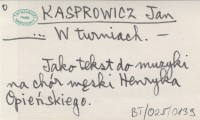 KASPROWICZ Jan
... W turniach. —
Jako tekst do muzyki
na chór męski Henryka
Opieńskiego.
BT/025/0139